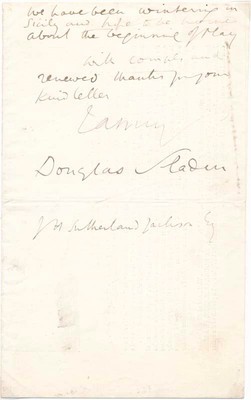 We have been wintering in
Sicily and hope to be home
about the beginning of May
with compts and
renewed thanks for your
kind letter
I am
Douglas Sladen
J H Sutherland Jackson Esq